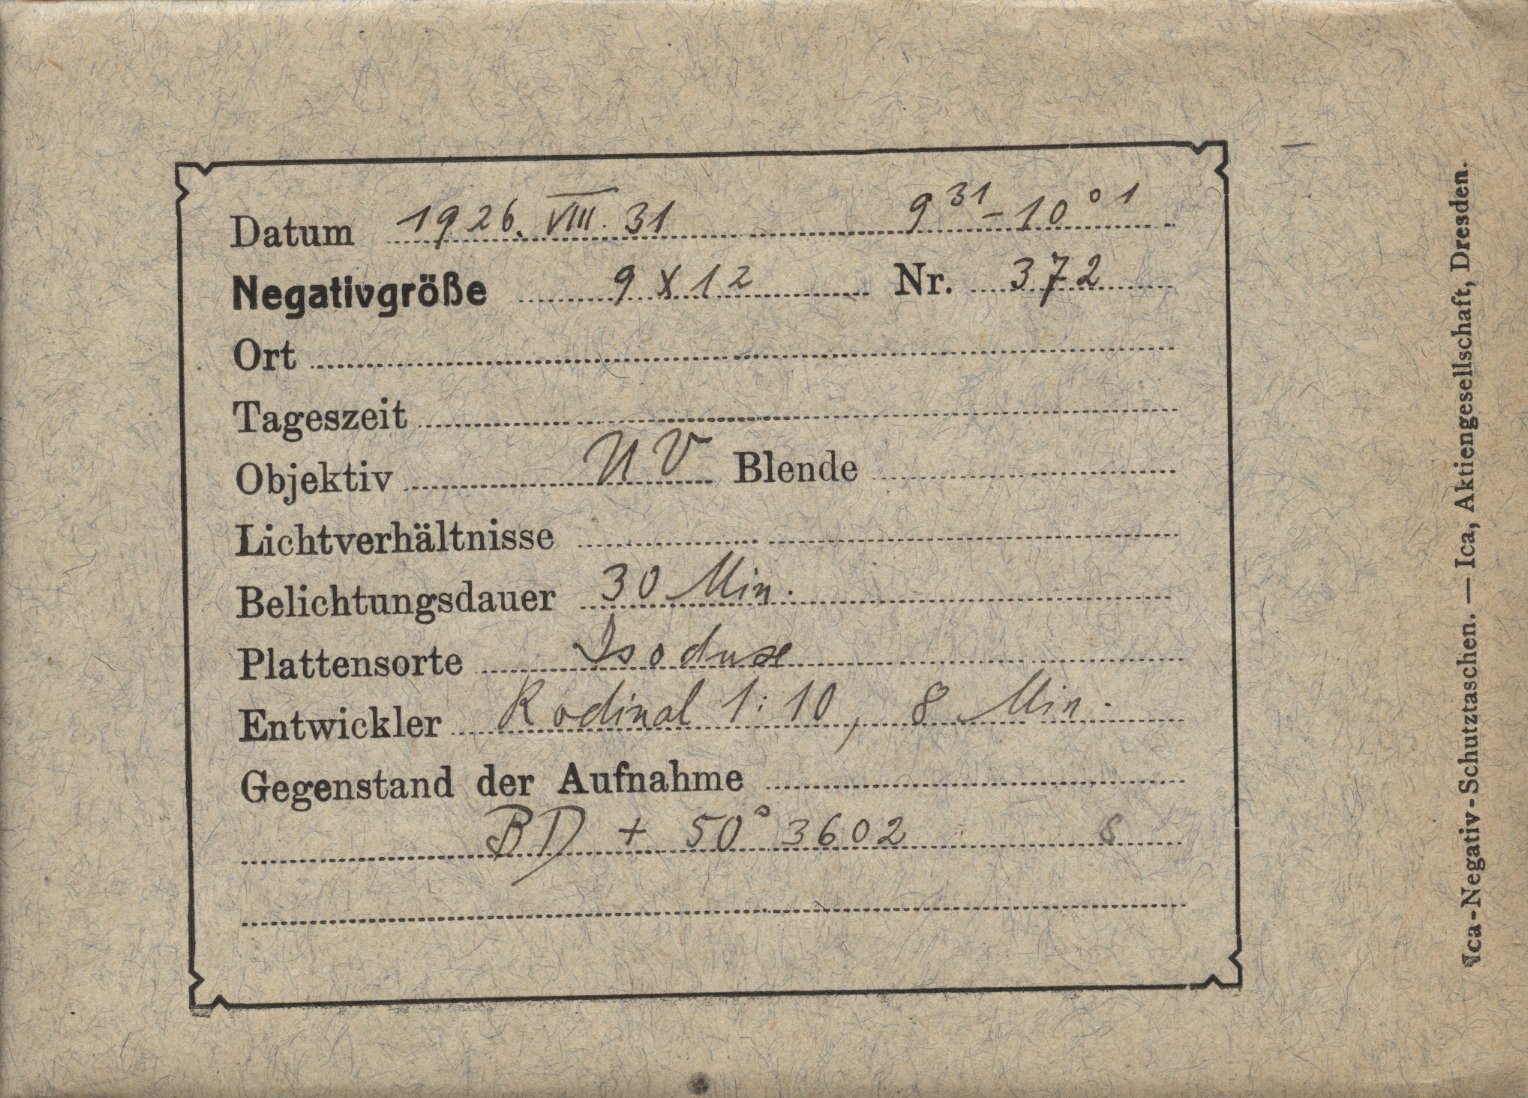 Datum 1926. VIII. 31 9 31 – 10 01
Negativgröße 9 x 12 Nr. 372
Ort
Tageszeit
Objektiv UV Blende
Lichtverhältnisse
Belichtungsdauer 30 Min.
Plattensorte Isoduxe
Entwickler Rodinal 1:10, 8 Min.
Gegenstand der Aufnahme
BD + 50° 3602 8
Ica-Negativ-Schutztaschen. — Ica, Aktiengesellschaft, Dresden.